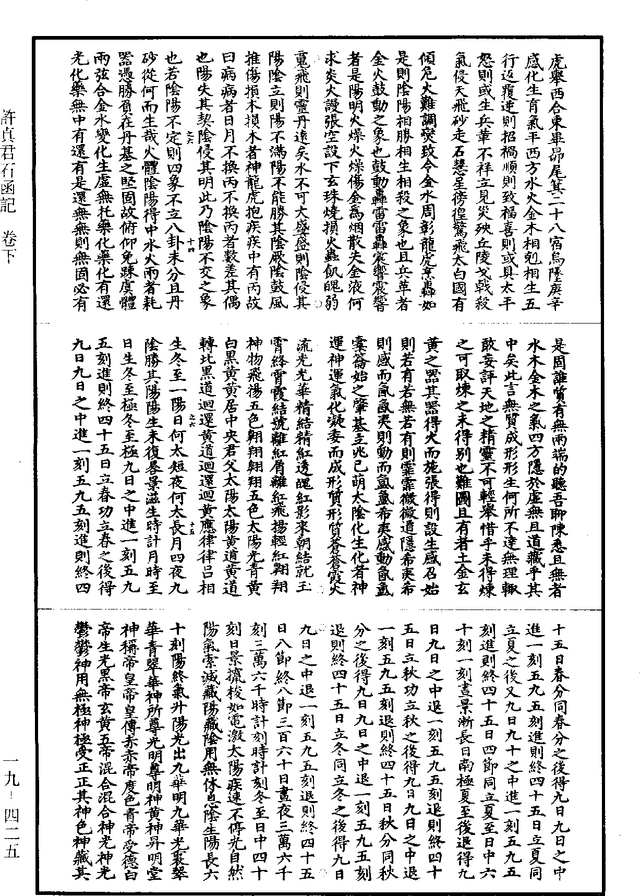 虎舉西合東畢昴尾箕二十八宿烏陸庚辛
感化生育氣平西方水火金木相剋相生五
行返復逆則招禍順則致福喜則或具太平
怒則或生兵革不祥立見災殃丘陵戈戟殺
氣侵天飛砂走石慧星徬徨驚飛太白國有
傾危火難調爕致令金水周彰龍虎烹轟如
是則陰陽相勝相生相殺之象也且兵革者
金火鼓動之象也鼓動轟雷雷轟震響震響
者是陽明火燥火燥傷金為烟散失金液何
求炎火謾張空設下玄珠燒損火蟲飢魄弱
䰟飛則靈丹遠矣水不可大盛盛則陰侵其
陽陰立則陽不滿陽不能勝其陰厥陰鼓風
推傷損木損木者神龍虎抱疾疾中有丙故
曰病病者日月不換丙不換丙者數差其偶
也陽失其契陰侵其明此乃陰陽不交之象
也若陰陽不定則四象不立八卦未分且丹
砂從何而生哉火體陰陽得中水火兩者耗
器憑勝負在丹基之堅固故俯仰免踈虞體
兩弦合金水變化生虛無托藥化藥化有還
光化藥無中有還有是還無無則無固必有
是固誰質有無兩端的聽吾聊陳悉且無者
水木金木之氣四方隱於虛無且道藏乎其
中矣此言無質成形形生何所不達無理輙
敢妄評天地之精靈不可輕舉惜乎未得煉
之可取煉之未得別也難圖且有者土金玄
黃之器其器得火而施張得則設生感召始
則若有若無若有則霏霏微微道隱希夷希
則感而氤氳夷則動而氤氳希夷感動氤氳
槖籥始之肇基立兆已萌太陰化生化者神
運神運氣化凝委而成形質形質蒼蒼霞火
流光光華精結精紅透曜紅影來朝結就玉
霄絳霄霞結號離紅屑離紅飛揚輕紅翔翔
神物飛揚五色翱翔翱翔五色太陽光青黃
白黑黃黃居中央君父太陽太陽黃道黃道
轉比黑道迴還黃道迴還迴黃鷹律律呂相
生冬至一陽日何太短夜何太長月四夜九
陰勝其陽陽生未復晷景滋生時計月時至
日生冬至極冬至極九日之中進一刻五九
五刻進則終四十五日立春功立春之後得
九日九日之中進一刻五九五刻進則終四
十五日春分同春分之後得九日九日之中
進一刻五九五刻進則終四十五日立夏同
立夏之後又九日九十之中進一刻五九五
刻進則終四十五日四節同立夏至日中六
十刻一刻晝景漸長日南極夏至後退得九
日九日之中退一刻五九五刻退則終四十
五日立秋功立秋之後得九日九日之中退
一刻五九五刻退則終四十五日秋分同秋
分之後得九日九日之中退一刻五九五刻
退則終四十五日立冬同立冬之後得九日
九日之中退一刻五九五刻退則終四十五
日八節終八節三百六十日晝夜三萬六千
刻三萬六千時計刻時計刻冬至日中四十
刻日景攙梭如電激太陽疾速不停光自然
陽氣索滅藏陽藏陰用無休息陰生陽長六
十刻陽終氣升陽光出九華明九華光聚翠
華青翠華神所尊光明尊明神黃神昇明堂
神稱帝皇帝皇傳赤赤帝度色青帝受德白
帝生光黑帝玄黃五帝混合混合神光神光
鬱鬱神用無極神極受正正其神色神藏其
許真君石函記　卷下
一九－四二五